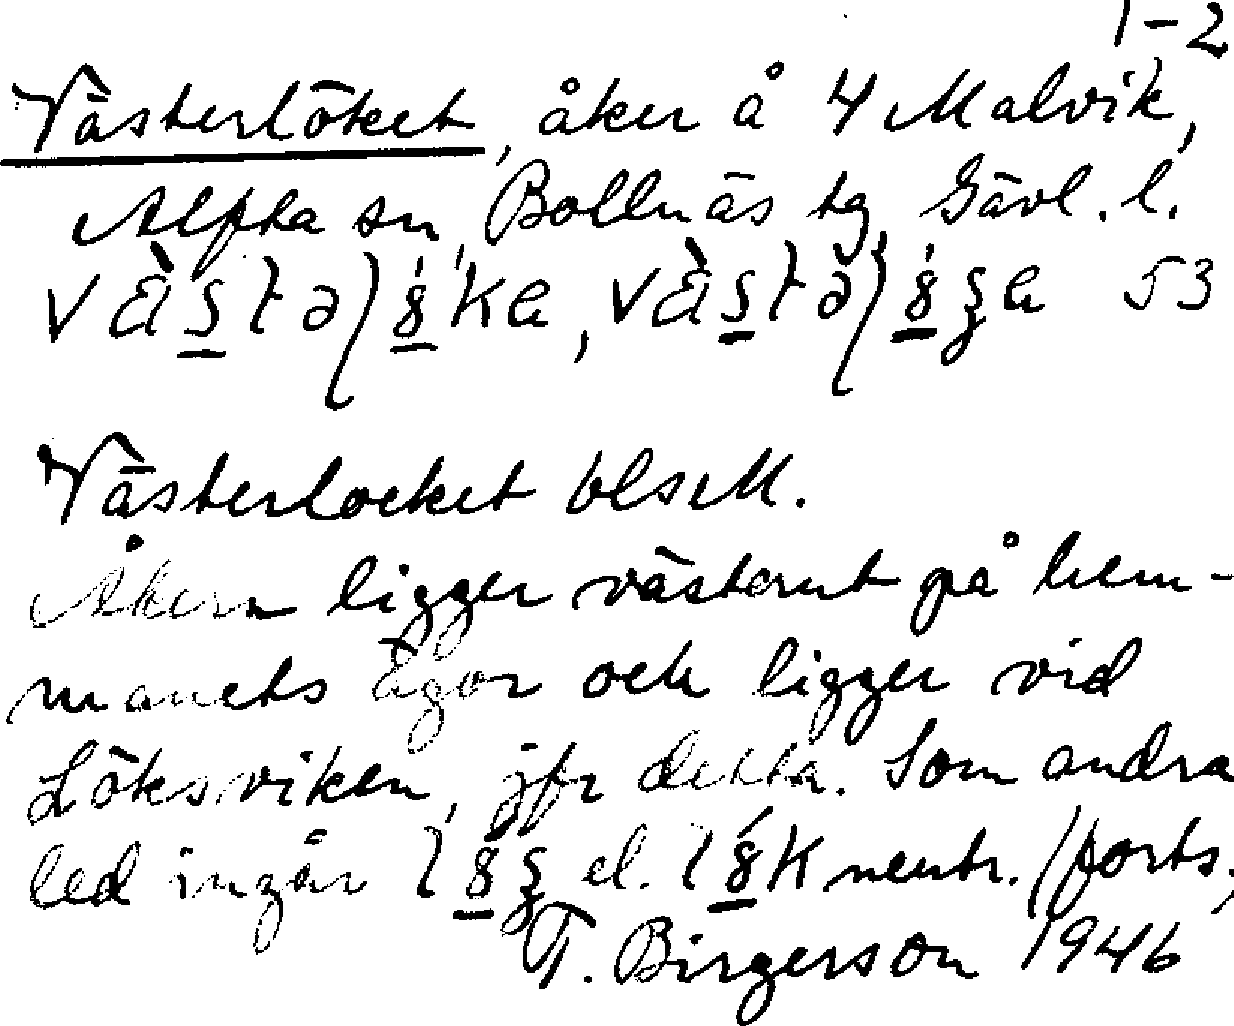 1-2
Västerlöket, åker å 4 Malvik,
Alfta sn, Bollnäs tg, Gävl. l.
53
Västerlocket blsM.
Åkern ligger västerut på hem-
manets ägor och ligger vid
Löksviken, jfr detta. Som andra
led ingår el. neutr. (forts.)
T. Birgerson 1946